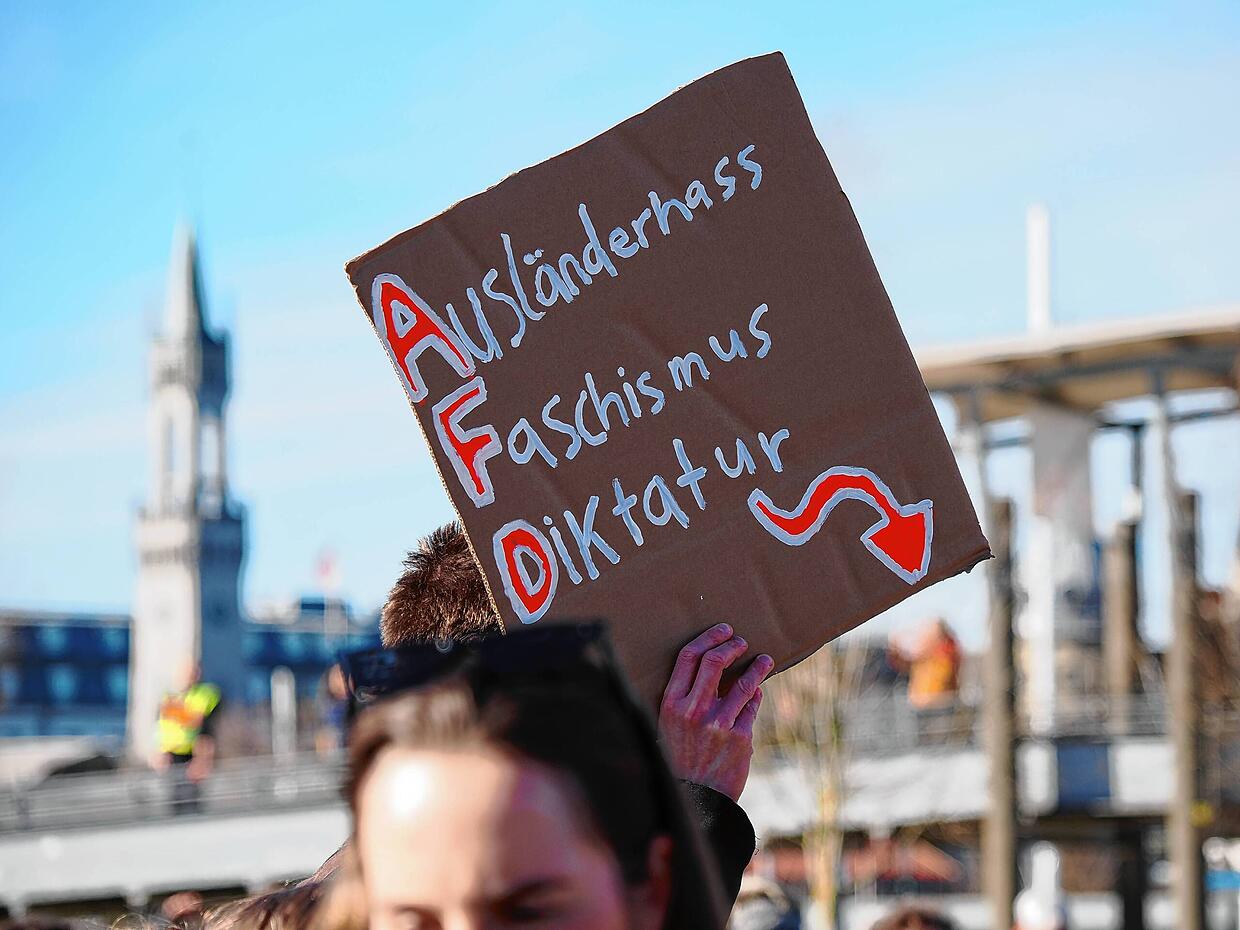 Ausländerhass
Faschismus
Diktatur